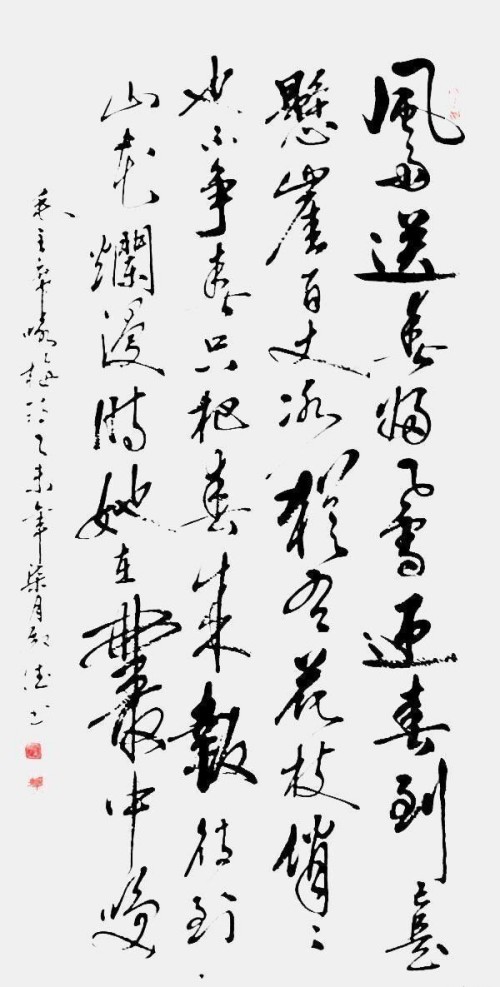 風雨送春歸飛雪迎春到已是
懸崖百丈冰猶有花枝俏〻
也不爭春只把春來報待到
山花爛漫時她在叢中笑
毛主席咏梅詞乙未年柒月德書